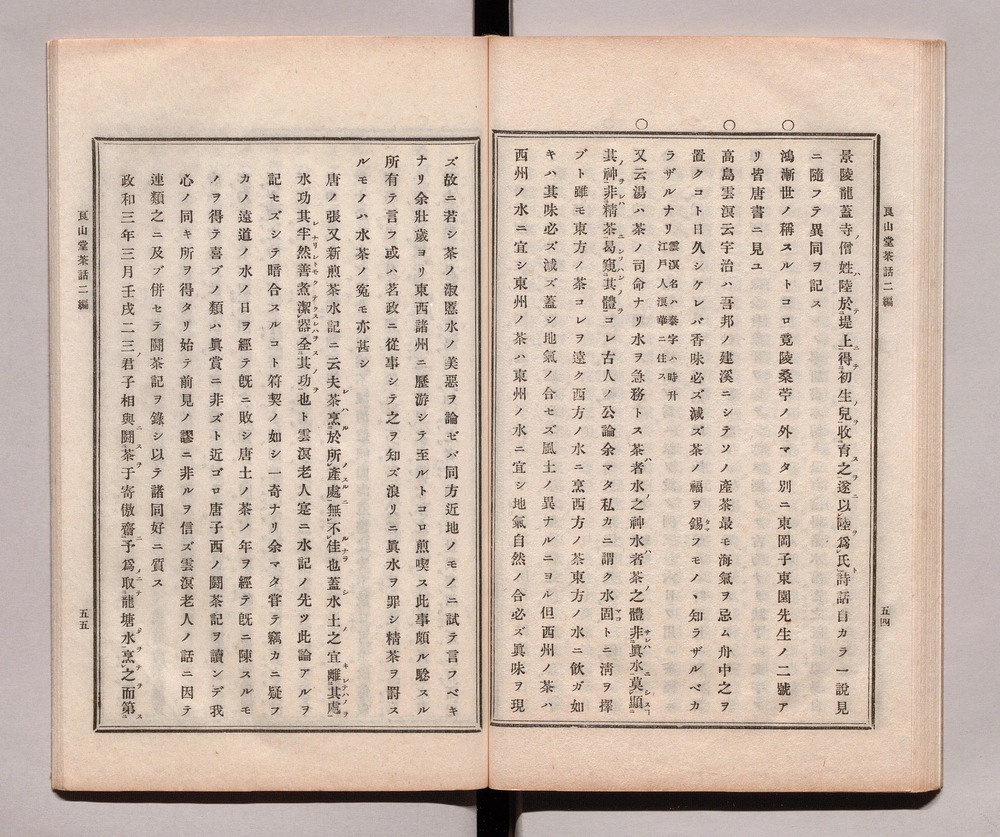 艮山堂茶話二編
五四
景陵龍蓋寺ノ僧姓ハ陸於テ堤上ニ得テ初生ノ兒ヲ收育スヲ之遂ニ以陸ヲ爲ト氏詩話自カラ一說見
ニ隨フテ異同ヲ記ス
○鴻漸世ノ稱スルトコロ竟陵桑苧ノ外マタ別ニ東岡子東園先生ノ二號ア
リ皆唐書ニ見ユ
○高島雲溟云宇治ハ吾邦ノ建溪ニシテソノ產茶最モ海氣ヲ忌ム舟中之ヲ
置クコト日久シケレバ香味必ズ減ズ茶ノ福ヲ錫フモノヽ知ラザルベカ
ラザルナリ雲溟名ハ泰字ハ時升江戶人浪華ニ住ス
○又云湯ハ茶ノ司命ナリ水ヲ急務トス茶者ハ水之ノ神水者ハ茶之ノ體非サレハ眞水ニ莫シ顯スコ
其ノ神ヲ非レハ精茶ニ曷ソ窺ハン其ノ體ヲコレ古人ノ公論余マタ私カニ謂ク水固トニ淸ヲ擇
ブト雖モ東方ノ茶コレヲ遠ク西方ノ水ニ烹西方ノ茶東方ノ水ニ飮ガ如
キハ其味必ズ減ズ蓋シ地氣ノ合セズ風土ノ異ナルニヨル但西州ノ茶ハ
西州ノ水ニ宜シ東州ノ茶ハ東州ノ水ニ宜シ地氣自然ノ合必ズ眞味ヲ現
ズ故ニ若シ茶ノ淑慝水ノ美惡ヲ論ゼバ同方近地ノモノニ試テ言フベキ
ナリ余壯歲ヨリ東西諸州ニ歷游シテ至ルトコロ煎喫ス此事頗ル驗スル
所有テ言フ或ハ茗政ニ從事シテ之ヲ知ズ浪リニ眞水ヲ罪シ精茶ヲ罸ス
ルモノハ水茶ノ寃モ亦甚シ
唐ノ張又新煎茶水記ニ云夫レ茶ハ烹ル於所ノ產スル處ニ無ルナラ不佳也蓋シ水土之ノ宜離キレテハ其ノ處ヲ
水功其レ半ナリ然レトモ善ク煮テ潔クスレハ器ヲ全ス其ノ功ヲ也ト雲溟老人寔ニ水記ノ先ツ此論アルヲ
記セズシテ暗合スルコト符契ノ如シ一奇ナリ余マタ嘗テ竊カニ疑フ
カノ遠道ノ水ノ日ヲ經テ旣ニ敗シ唐土ノ茶ノ年ヲ經テ旣ニ陳スルモ
ノヲ得テ喜ブノ類ハ眞賞ニ非ズト近ゴロ唐子西ノ鬪茶記ヲ讀ンデ我
心ノ同キ所ヲ得タリ始テ前見ノ謬ニ非ルヲ信ズ雲溟老人ノ話ニ因テ
連類之ニ及ブ併セテ鬪茶記ヲ錄シ以テ諸同好ニ質ス
政和三年三月壬戌二三ノ君子相與ニ鬪スヲ茶于寄傲齋ニ予爲ニ取テ龍塘ノ水ヲ烹テ之ヲ而第ス
艮山堂茶話二編
五五